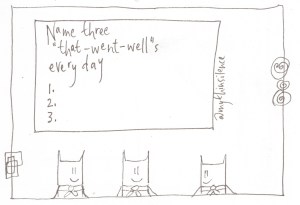 Name three
"that-went-well"s
every day
1.
2.
3.
@mythinsilence